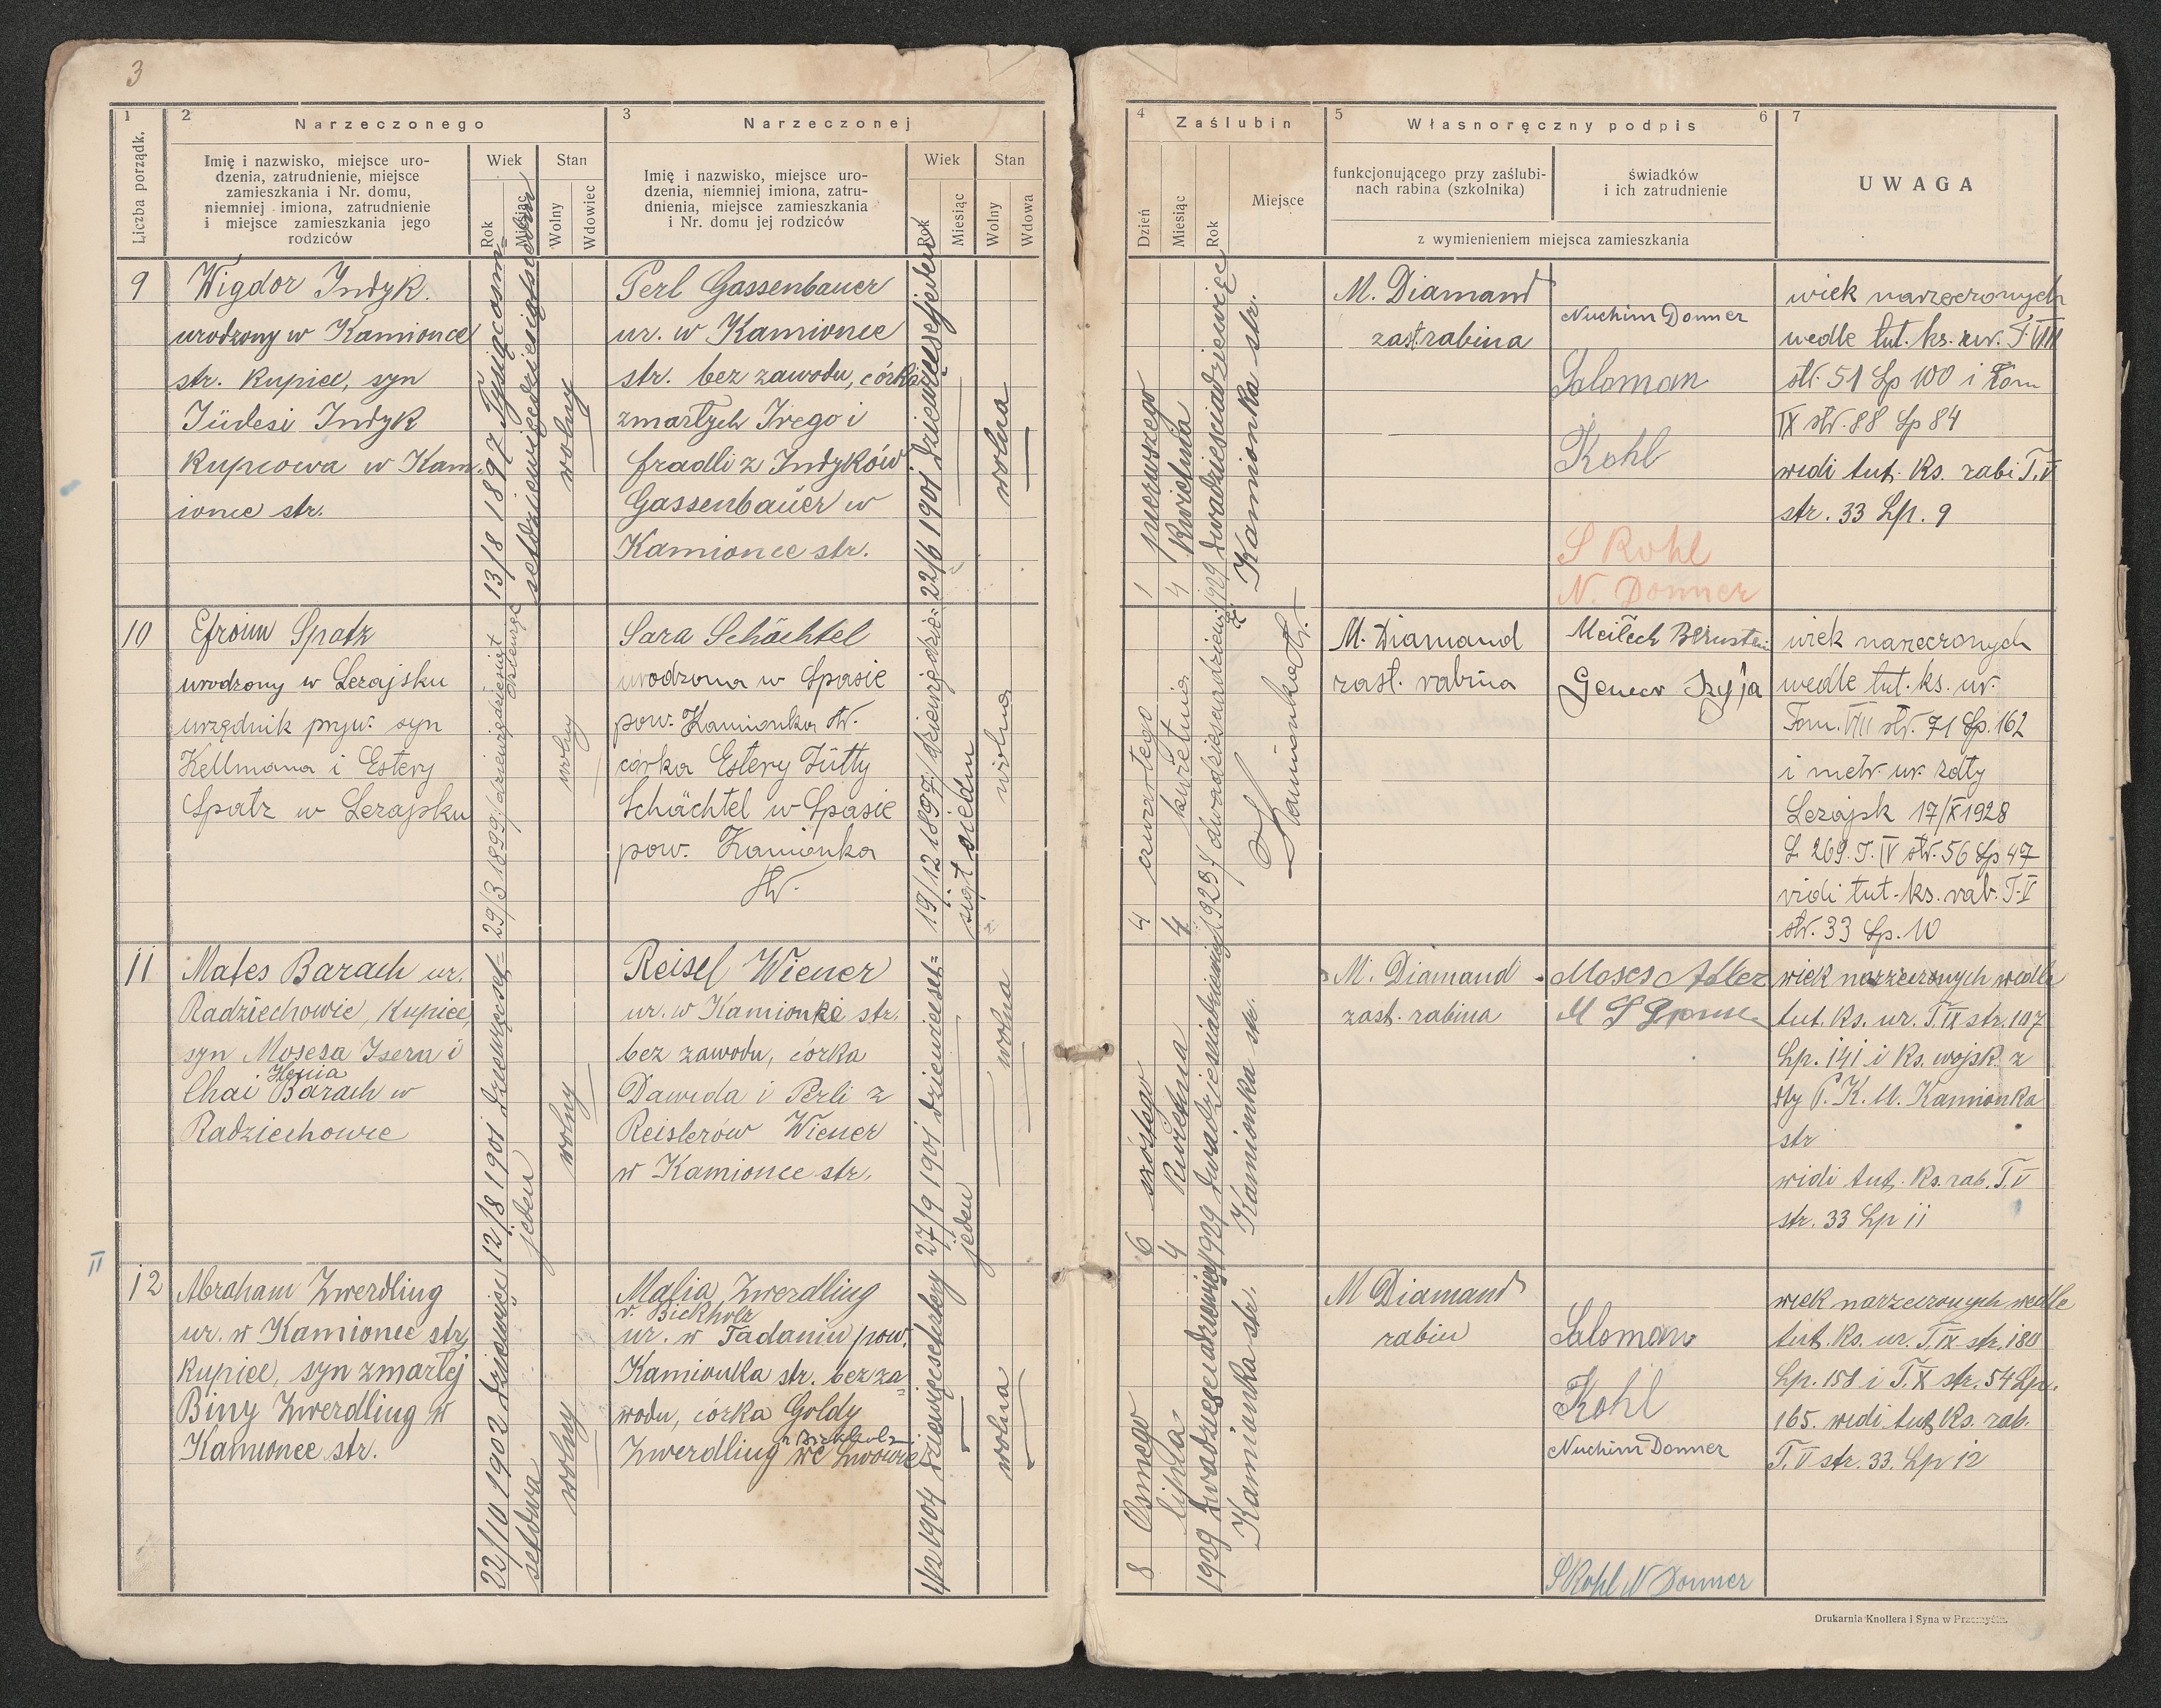 3
1
2
Narzeczonego
3
Narzeczonej
Liczba porządk.
Imię i nazwisko, miejsce uro-
dzenia, zatrudnienie, miejsce
zamieszkania i Nr. domu,
niemniej imiona, zatrudnienie
i miejsce zamieszkania jego
rodziców
Wiek
Rok
Miesiąc
Stan
Wolny
Wdowiec
Imię i nazwisko, miejsce uro-
dzenia, niemniej imiona, zatru-
dnienia, miejsce zamieszkania
i Nr. domu jej rodziców
Wiek
Rok
Miesiąc
Stan
Wolny
Wdowa
9
Wigdor Indyk.
urodzony w Kamionce
str. kupiec, syn
Jüdesi Indyk
kupcowa w Kam.
ionce str.
13/8 1897 Tysiąc osm=
setdziewięćdziesiątsiedm
wolny
Perl Gassenbauer
ur. w Kamionce
str. bez zawodu, córka
zmarłych Irego i
Fradli z Indyków
Gassenbauer w
Kamionce str.
22/6 1901 dziewięćsetjeden
wolna
10
Efroim Spatz
urodzony w Leżajsku
urzędnik pryw. syn
Kellmana i Estery
Spatz w Leżajsku
29/3 1899
wolny
Sara Schächtel
urodzona w Spasie
pow. Kamionka str.
córka Estery Jütty
Schächtel w Spasie
pow. Kamionka
str.
19/12 1897 /dziewięćdzie=
siąt siedm
wolna
11
Mates Barach ur.
Radziechowie, kupiec,
syn Mosesa Isera i
Henia
Chai Barach w
Radziechowie
12/8 1901 dziewięćset=
jeden
wolny
Reisel Wiener
ur. w Kamionke str.
bez zawodu, córka
Dawida i Perli z
Reislerów Wiener
w Kamionce str.
27/9 1901 dziewięćset=
jeden
wolna
II
12
Abraham Zwerdling
ur. w Kamionce str,
kupiec, syn zmarłej
Biny Zwerdling w
Kamionce str.
22/10 1902 dziewięć
setdwa
wolny
Malia Zwerdling
v. Bickholz
ur. w Tadaniu pow.
Kamionka str. bez za=
wodu, córka Goldy
v Bickholz
Zwerdling we Lwowie
1/2 1904 dziewięćsetcztery
wolna
4
Zaślubin
5
Własnoręczny podpis
6
7
Dzień
Miesiąc
Rok
Miejsce
funkcjonującego przy zaślubi-
nach rabina (szkolnika)
świadków
i ich zatrudnienie
z wymienieniem miejsca zamieszkania
UWAGA
1 pierwszego
4 kwietnia
1929 dwadzieściadziewięć
Kamionka str.
M. Diamand
zast. rabina
Nuchim Donner
Saloman
Kohl
S Kohl
N. Donner
wiek narzeczonych
wedle tut. ks. ur. T. VIII
str. 51 Lp 100 i Tom
IX str. 88 Lp 84
widi tut. ks. rabi T. V
str. 33 Lp. 9
4 czwartego
4 kwietnia
Kamionka str.
M. Diamand
zast. rabina
Meilech Bernstein
Szyja
wiek narzeczonych
wedle tut. ks. ur.
Tom. VIII str. 71 Lp. 162
i metr. ur. zdty
Leżajsk 17/X 1928
L 269. T. IV str. 56 Lp 47
vidi tut. ks. rab. T. V
str. 33 Lp. 10
6 szóstego
4 kwietnia
1929 dwadzieściadziewięć
Kamionka str.
M. Diamand
zast. rabina
Moses Adler
wiek narzeczonych wedle
tut. ks. ur. T. IX str. 107
Lp. 141 i ks. wojsk. z
dty P. K. U. Kamionka
str
widi tut. ks. rab. T. V
str. 33 Lp 11
8 Osmego
lipka
1929 dwadzieściadziewięć
Kamionka str.
M Diamand
rabin
Saloman
Kohl
Nuchim Donner
S Kohl N Donner
wiek narzeczonych wedle
tut. ks. ur. T. IX str. 180
Lp. 158 i T. X str. 54 Lp.
165. widi tut ks. rab.
T. V str. 33. Lp 12
Drukarnia Knollera i Syna w Przemyślu.